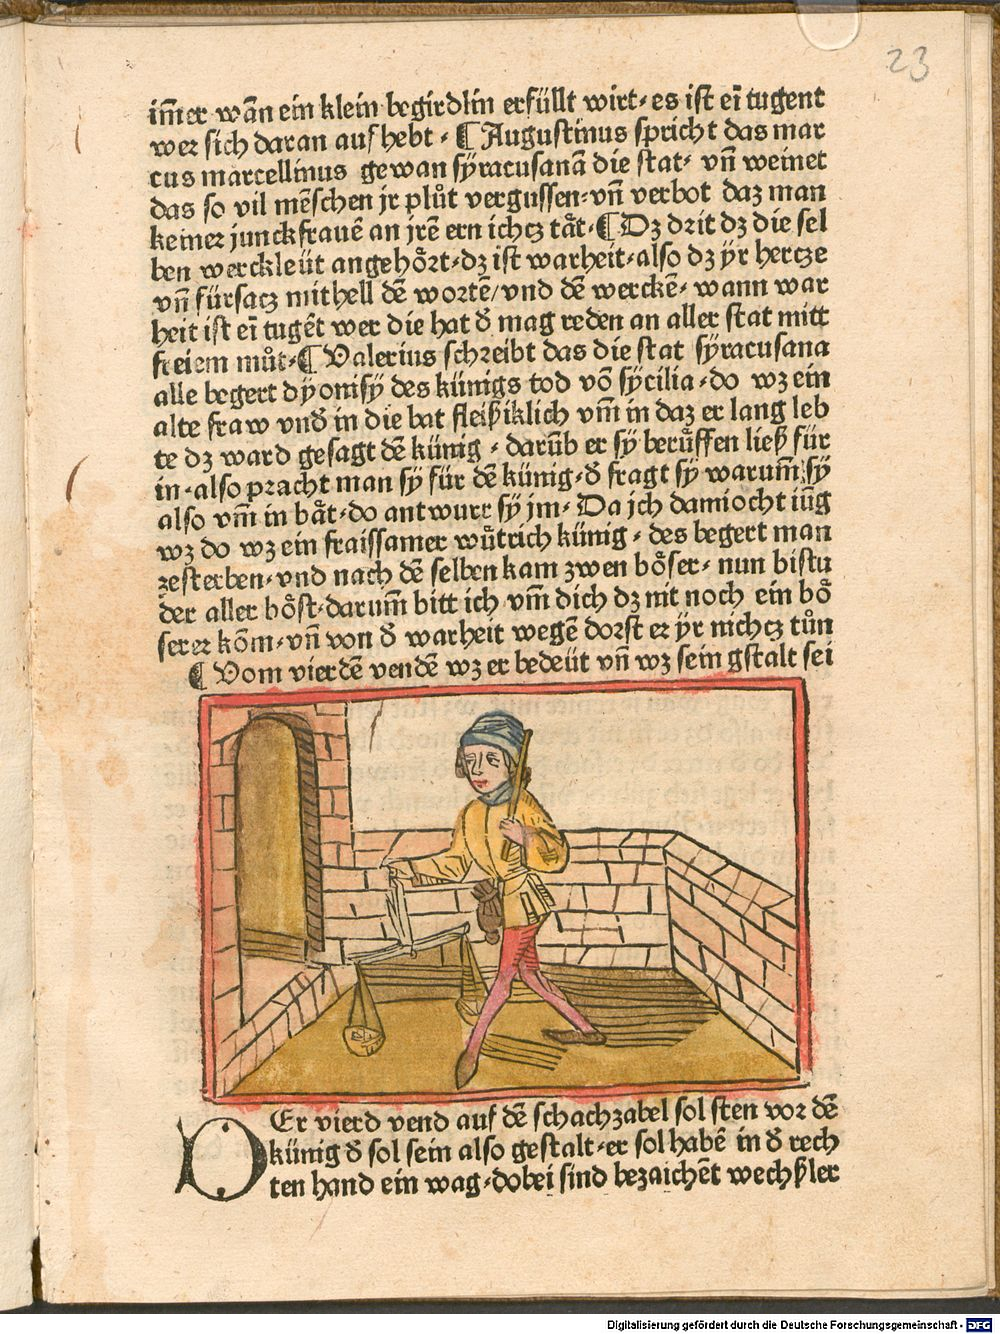 23
im̄er wān ein klein begirdlin erfüllt wirt⸗ es ist eī tugent
wer sich daran auf hebt ⸗ ¶ Augustinus spricht das mar
cus marcellinus gewan sÿracusanā die stat⸗ vn̄ weinet
das so vil mēschen jr plůt vergussen⸗vn̄ verbot daz man
keiner junckfrauē an jrē ern ichcz tåt⸗¶ Dz drit dz die sel
ben werckleüt angehőrt⸗dz ist warheit⸗also dz ÿr hercze
vn̄ fürsacz mithell dē wortē/vnd dē werckē⸗ wann war
heit ist eī tugēt wer die hat d̓ mag reden an aller stat mitt
freiem můt⸗¶ Valerius schreibt das die stat sÿracusana
alle begert dÿonisÿ des künigs tod vō sÿcilia⸗do wz ein
alte fraw vnd̓ in die bat fleißiklich vm̄ in daz er lang leb
te dz ward gesagt dē künig ⸗ darūb er sÿ berůffen ließ für
in⸗also pracht man sÿ für dē künig⸗d̓ fragt sÿ warum̄ sÿ
also vm̄ in båt⸗do antwurt sÿ jm⸗ Da ich damiocht iūg
wz do wz ein fraissamer wůtrich künig ⸗ des begert man
zesterben⸗vnd nach dē selben kam zwen bőser⸗ nun bistu
der aller bőst⸗darum̄ bitt ich vm̄ dich dz nit noch ein bő
serer kōm⸗vn̄ von d̓ warheit wegē dorst er ÿr nichcz tůn
¶ Vom vierdē vendē wz er bedeüt vn̄ wz sein gstalt sei
DEr vierd vend auf dē schachzabel sol sten vor dē
künig d̓ sol sein also gestalt⸗er sol habē in d̓ rech
ten hand ein wag⸗dobei sind bezaichēt wechßler
Digitalisierung gefördert durch die Deutsche Forschungsgemeinschaft - DFG